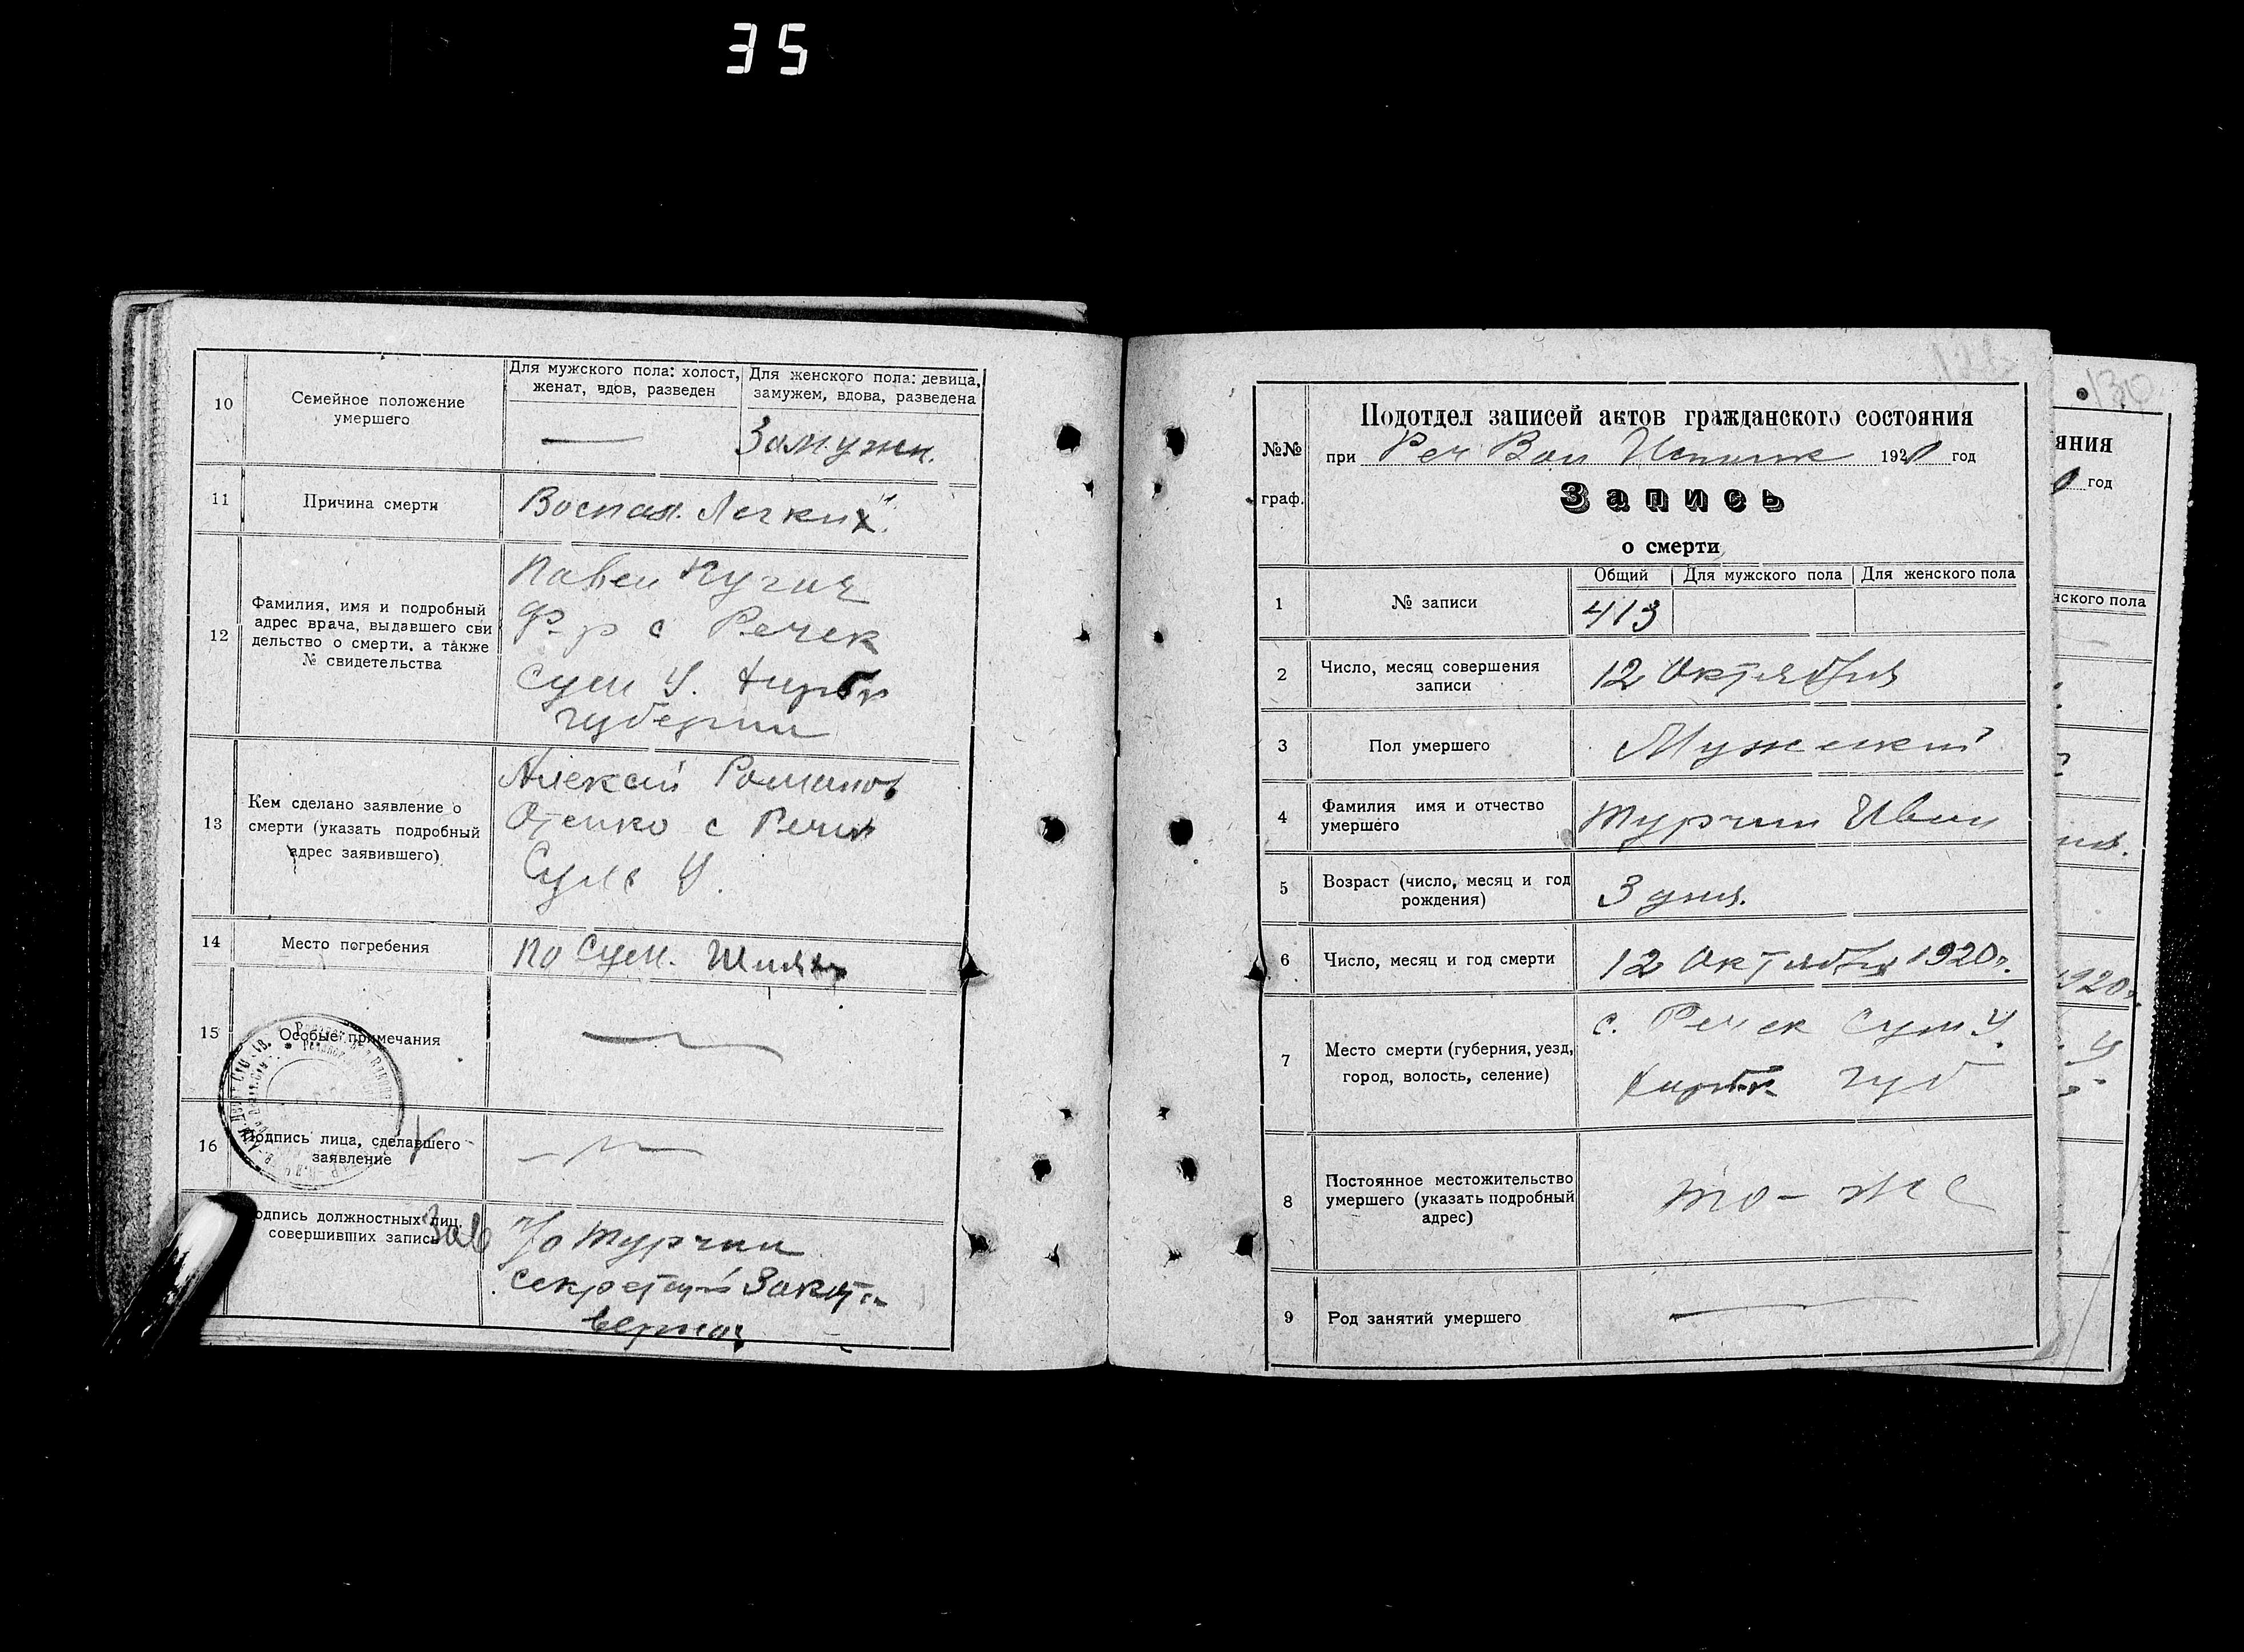 35
10
Семейное положение
умершего
Для мужского пола: холост,
женат, вдов, разведен
Для женского пола: девица,
замужем, вдова, разведена
Замужн.
11
Причина смерти
Воспал. Легких
12
Фамилия, имя и подробный
адрес врача, выдавшего сви
дельство о смерти, а также
№ свидетельства
Павел
с Речек
Сум У.
губернии
13
Кем сделано заявление о
смерти (указать подробный
адрес заявившего)
Алексей Романов
с Речек
Сум У.
14
Место погребения
по Сум.
15
Особые примечания
16
Подпись лица, сделавшего
заявление
одпись должностных лиц,
совершивших запись
Зав
Турчин
секретарь
№№
граф.
Подотдел записей актов гражданского состояния
при Реч Вол Исполк 1920 год
Запись
о смерти
1
№ записи
Общий
Для мужского пола
Для женского пола
413
2
Число, месяц совершения
записи
12 Октября
3
Пол умершего
Мужеский
4
Фамилия имя и отчество
умершего
Турчин Иван
5
Возраст (число, месяц и год
рождения)
3 дня.
6
Число, месяц и год смерти
12 Октября 1920г.
7
Место смерти (губерния, уезд,
город, волость, селение)
с. Речек Сум. У.
губ
8
Постоянное местожительство
умершего (указать подробный
адрес)
то-же
9
Род занятий умершего
130
яния
0 год
нского пола
1920г.
У